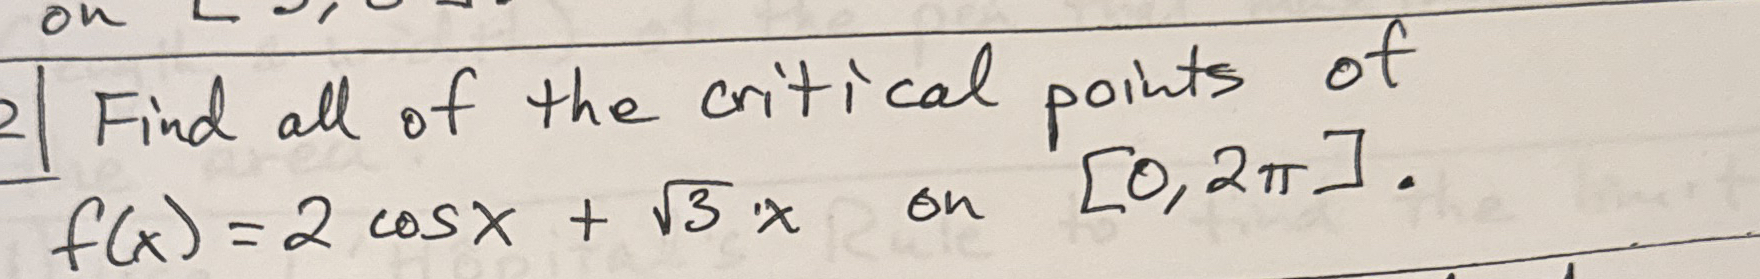 on [
2| Find all of the critical points of
f(x) = 2 cosx + √3 x on [0, 2π].